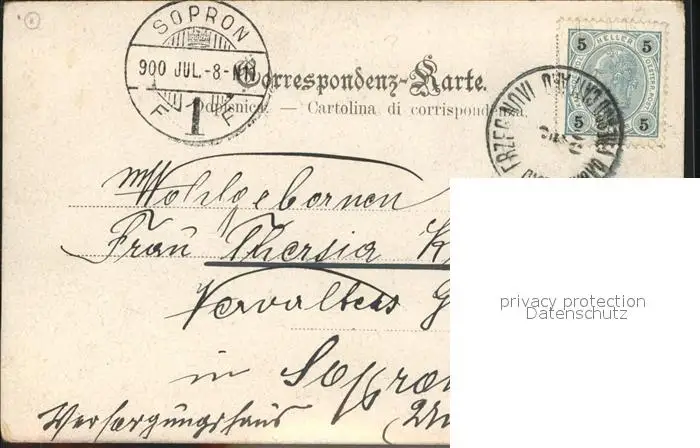 SOPRON
900 JUL.-8-N11
F 1 F
5 HELLER 5
5 5
Correspondenz-Karte.
Dopisnica. — Cartolina di corrispondenza.
Wohlgebornen
Frau Thersia K
Verwalters G
in Sopron
Versorgungshaus
privacy protection
Datenschutz